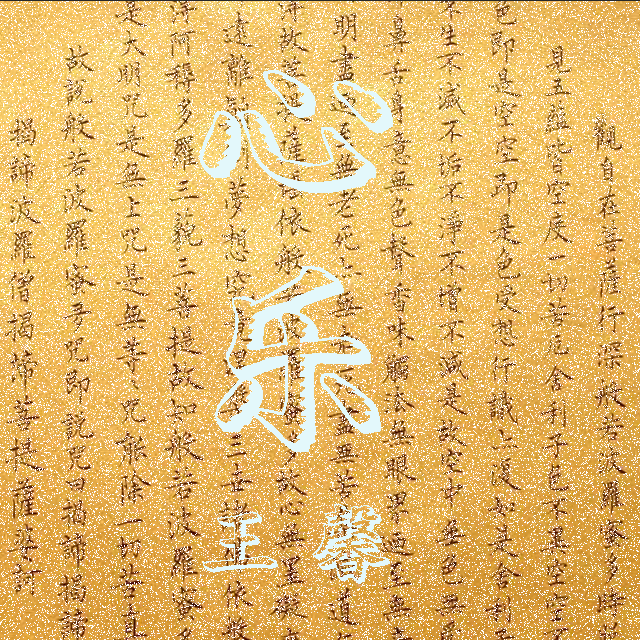 心乐
王馨
觀自在菩薩行深般若波羅蜜多時
見五蘊皆空度一切苦厄舍利子色不異空空
色即是空空即是色受想行識亦復如是舍利子
不生不滅不垢不淨不增不減是故空中無色無
鼻舌身意無色聲香味觸法無眼界乃至無
明盡乃至無老死亦無老死盡無苦道
故菩提薩依般若羅多故心無罣礙
遠離夢想究三世諸依般
得阿耨多羅三藐三菩提故知般若波羅蜜多
是大明咒是無上咒是無等〻咒能除一切苦真
故說般若波羅蜜多咒即說咒曰揭諦揭諦
揭諦波羅僧揭諦菩提薩婆訶